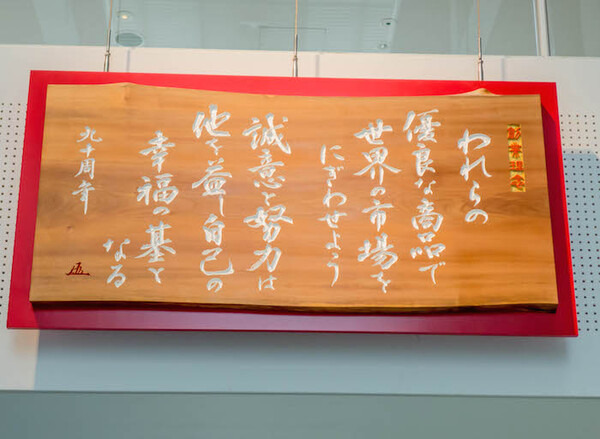 創業理念
われらの
優良な商品で
世界の市場を
にぎわせよう
誠意と努力は
他を益し自己の
幸福の基と
なる
九十周年